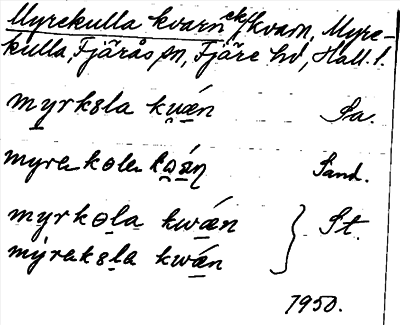 Myrekulla kvarn el/kvarn, Myre-
kulla, Fjärås sn, Fjäre hd, Hall. l.
myrkɵla kwǽn Sa.
myrekɵla Sand.
myrkɵla kwǽn St.
mýrekɵla kwǽn
1950.